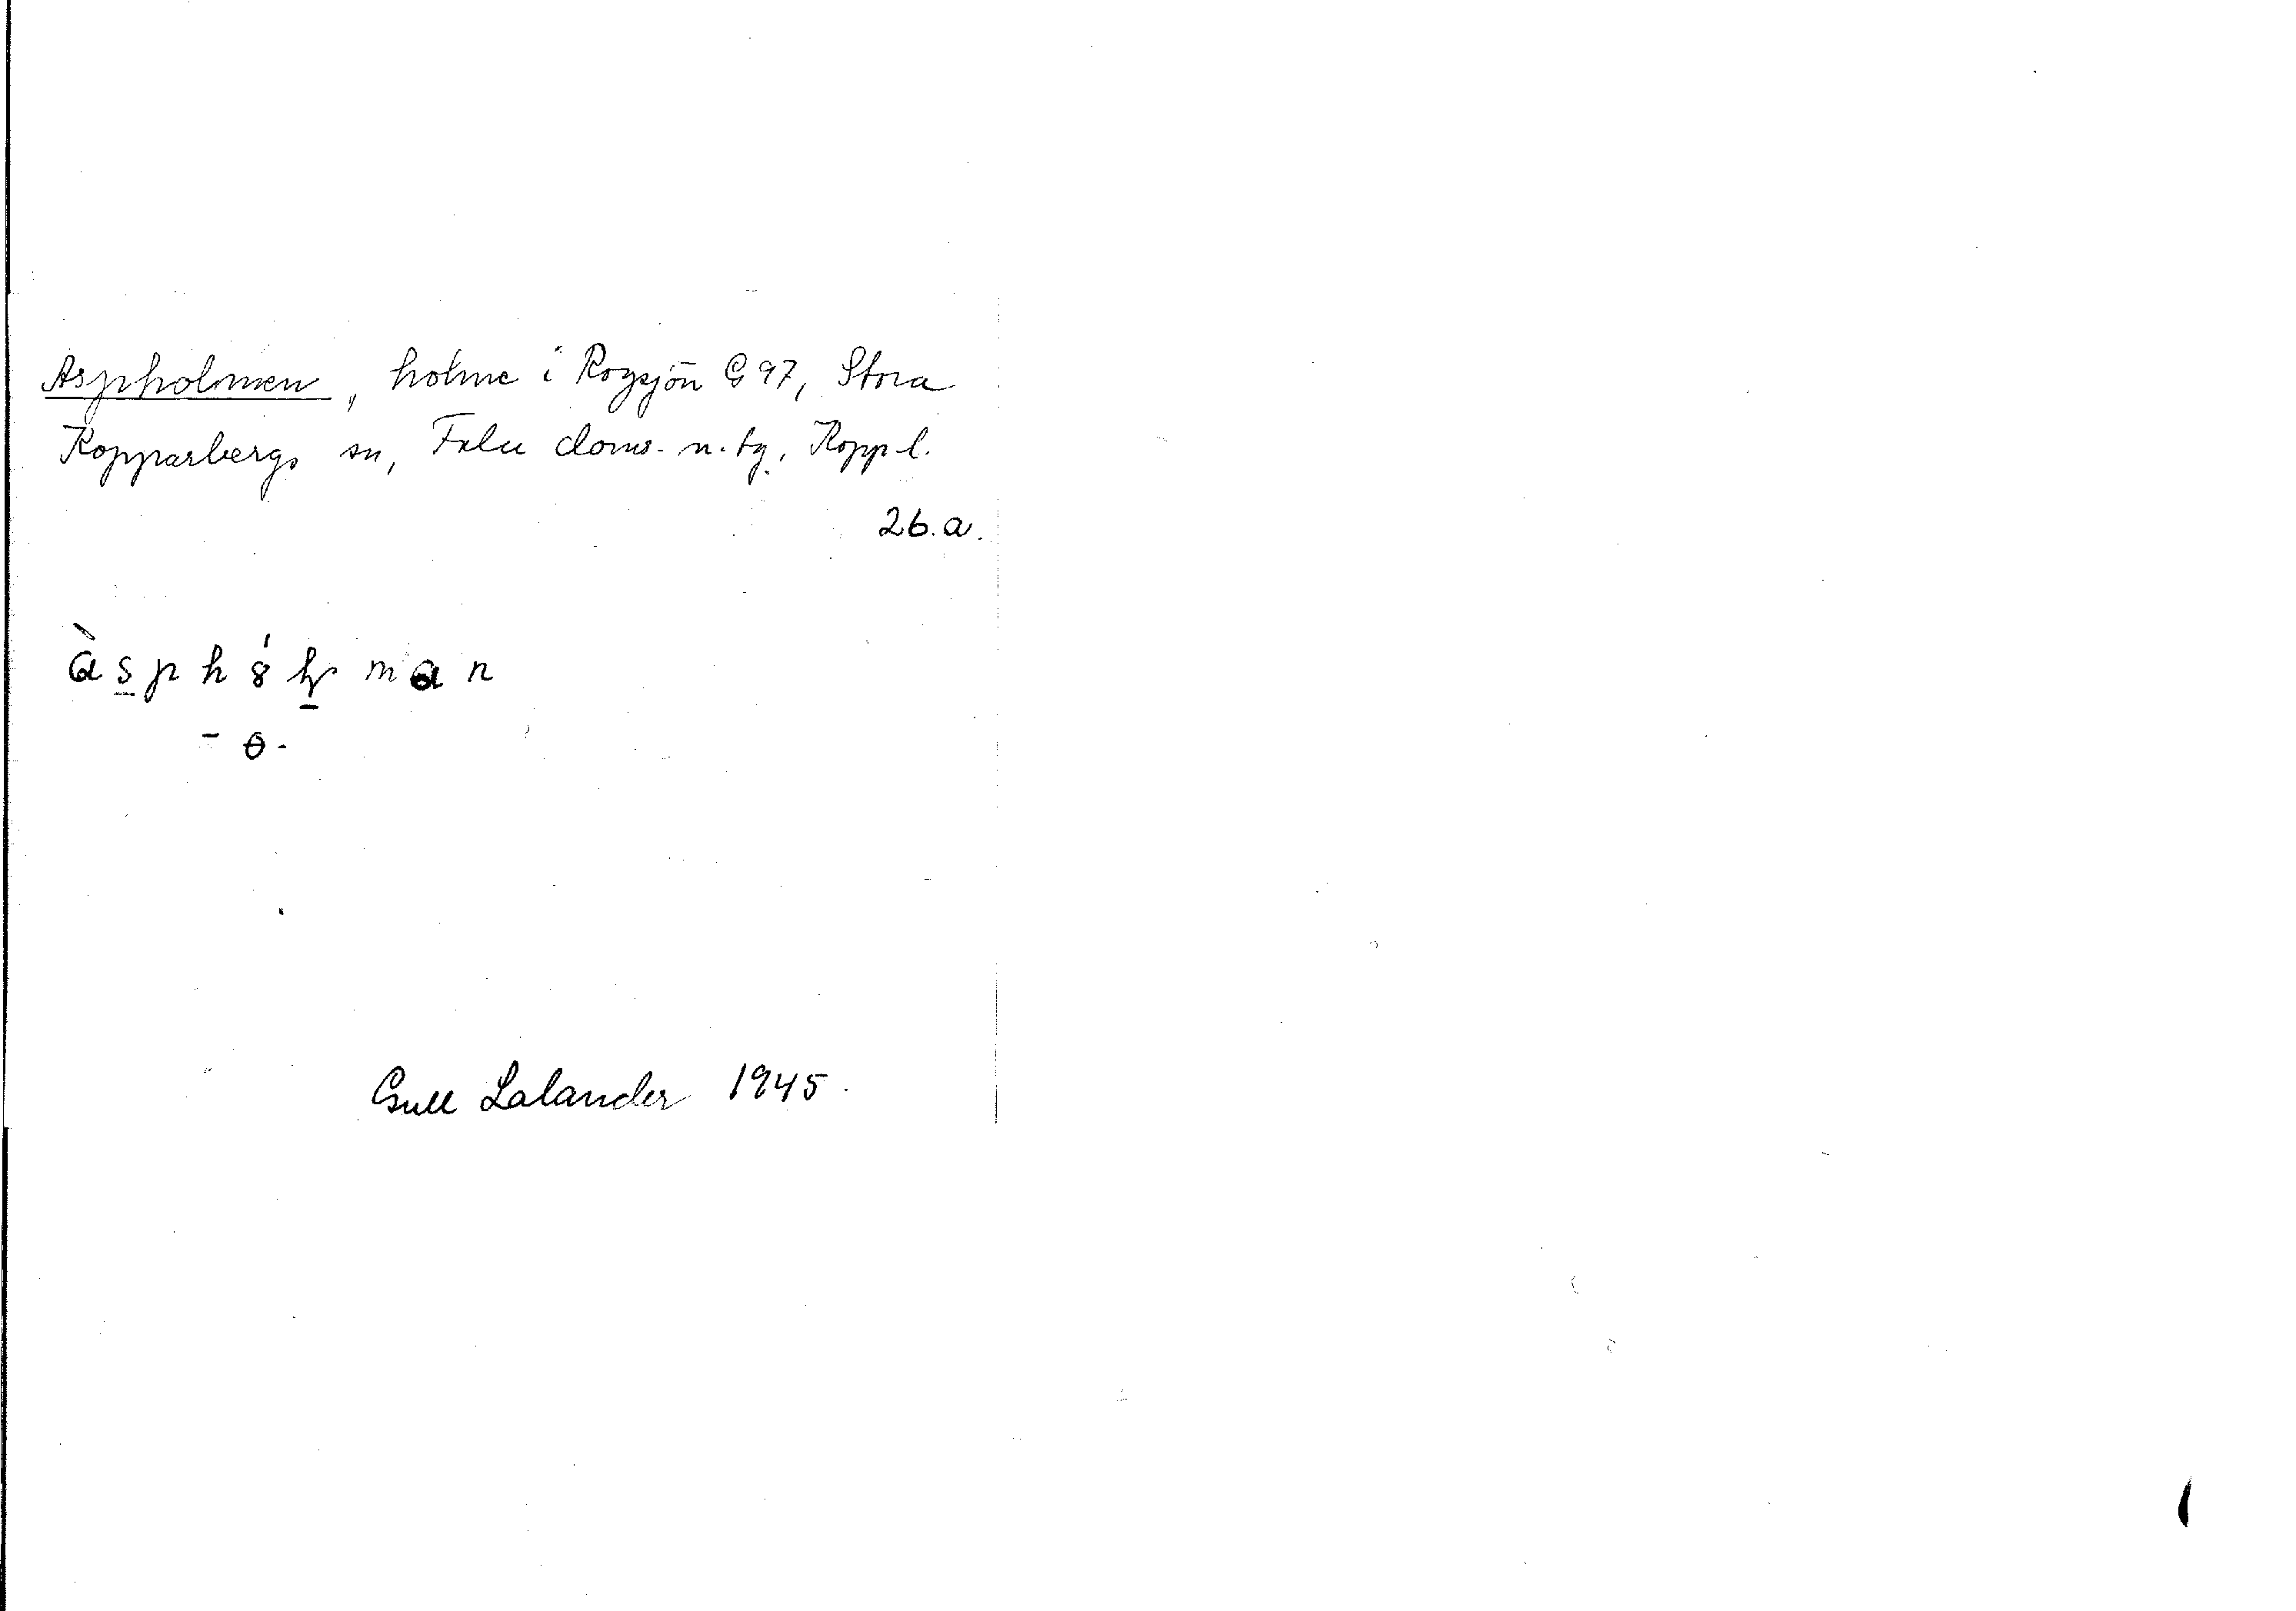 Aspholmen, holme i Rogsjön G 97, Stora
Kopparbergs sn, Falu doms. n. tg. Kopp l.
26.a.
àsphó̵ɫman
- ɵ -
Gull Lalander 1945.